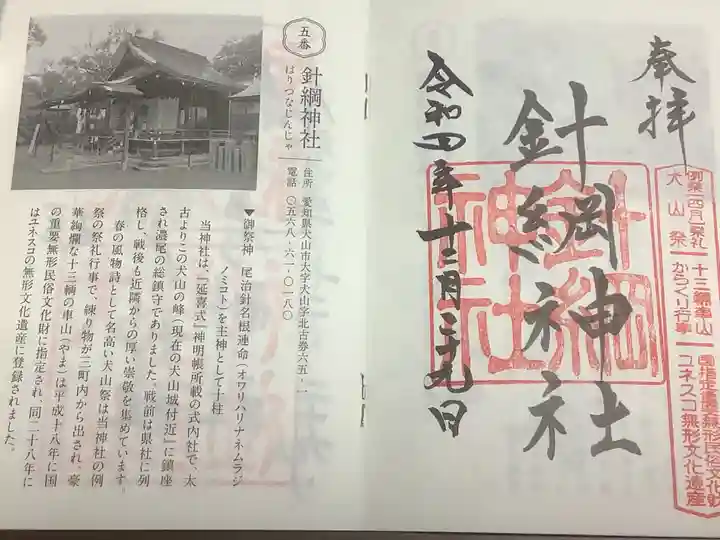 五番
針綱神社
はりつなじんじゃ
住所 愛知県犬山市大字犬山字北古券六五‐一
電話 〇五六八‐六一‐〇一八〇
▼御祭神 尾治針名根連命(オワリハリナネムラジ
ノミコト)を主神として十柱
当神社は、『延喜式』神明帳所載の式内社で、太
古よりこの犬山の峰(現在の犬山城付近)に鎮座
され濃尾の総鎮守でありました。戦前は県社に列
格し、戦後も近隣からの厚い崇敬を集めています。
春の風物詩として名高い犬山祭は当神社の例
祭の祭礼行事で、練り物が三町内から出され、豪
華絢爛な十三輌の車山(やま)は平成十八年に国
の重要無形民俗文化財に指定され、同二十八年に
はユネスコの無形文化遺産に登録されました。
奉拝
針綱神社
針綱神社
令和四年十二月二十九日
例祭(四月)祭礼
犬山祭
十三輌車山
からくり行事
国指定重要無形民俗文化財
ユネスコ無形文化遺産